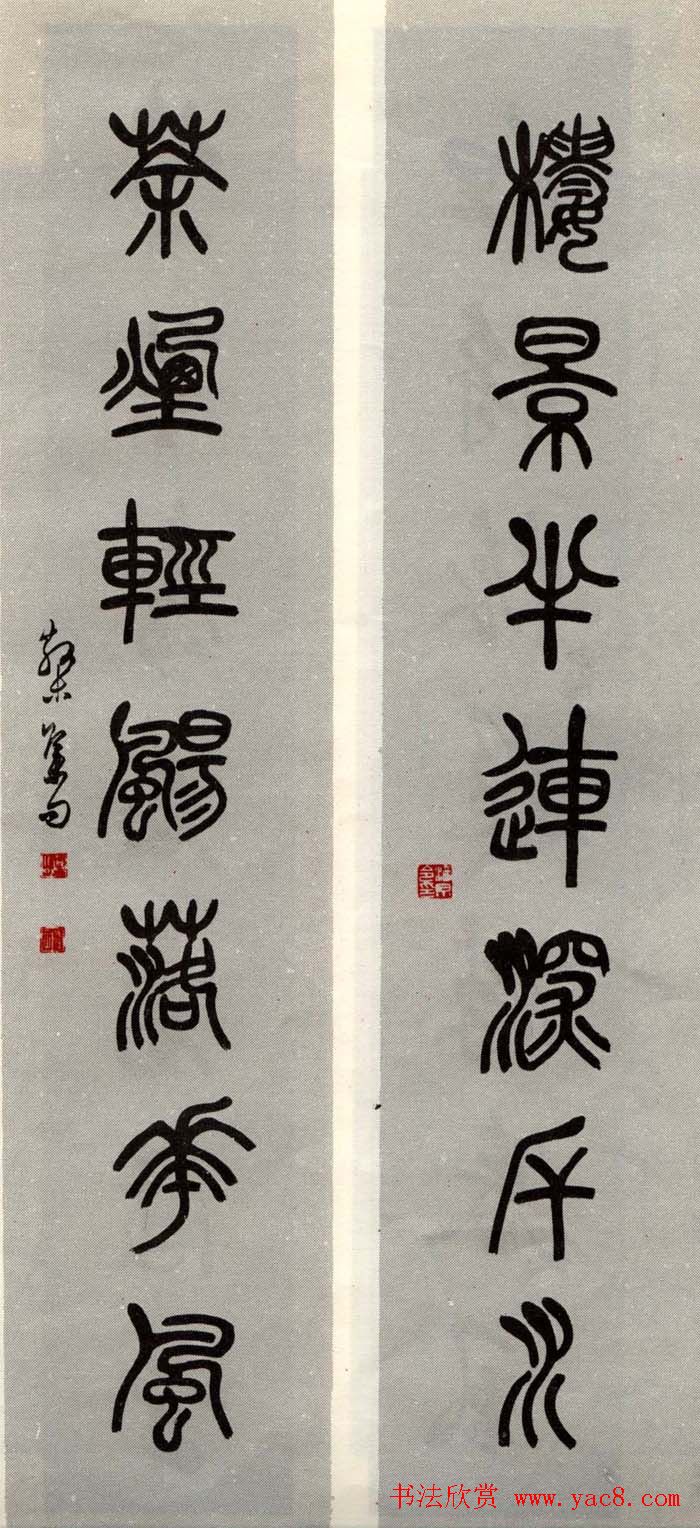 樓景半連深厈水
茶煙輕颺落華風
书法欣赏 www.yac8.com